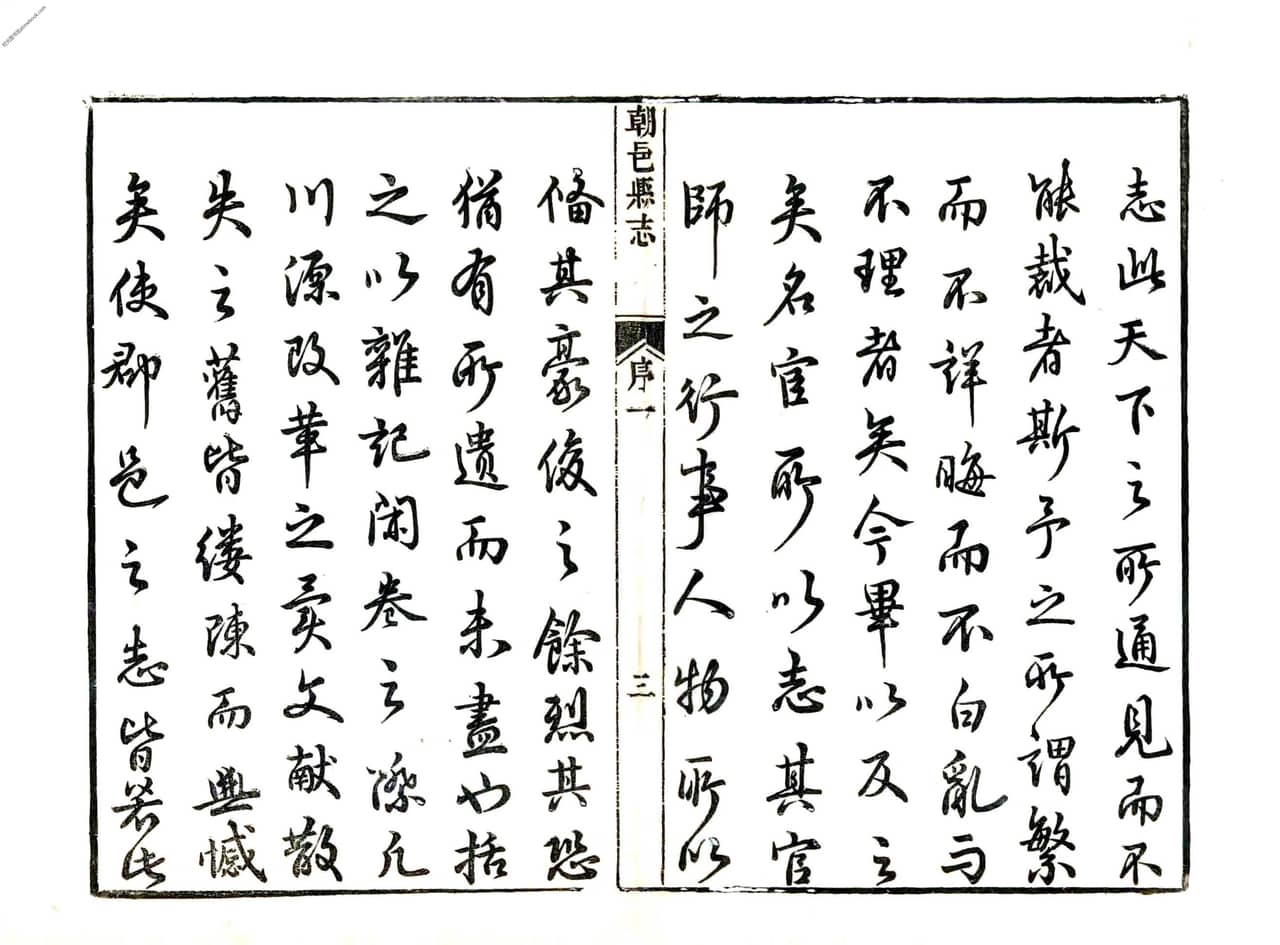 志此天下之所通見而不
能裁者斯予之所謂繁
而不詳晦而不白亂而
不理者矣今畢以反之
矣名官所以志其官
師之行事人物所以
朝邑縣志
序一
三
備其豪俊之餘烈其恐
猶有所遺而未盡也括
之以雜記閑卷之際凡
川源改革之異文献散
失之舊皆縷陳而無憾
矣使郡邑之志皆若此